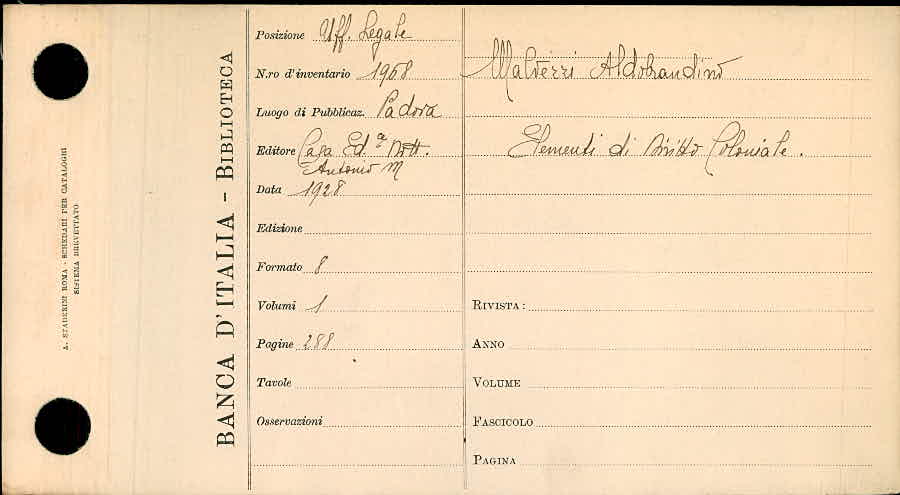 A. STADERINI ROMA - SCHEDARI PER CATALOGHI
SISTEMA BREVETTATO
BANCA D'ITALIA - BIBLIOTECA
Posizione Uff. Legale
N.ro d'inventario 1968
Luogo di Pubblicaz. Padova
Editore Casa Ed.ª Dott.
Antonio M
Data 1928
Edizione
Formato 8
Volumi 1
Pagine 288
Tavole
Osservazioni
Malvezzi Aldobrandino
Elementi di Diritto Coloniale.
RIVISTA:
ANNO
VOLUME
FASCICOLO
PAGINA